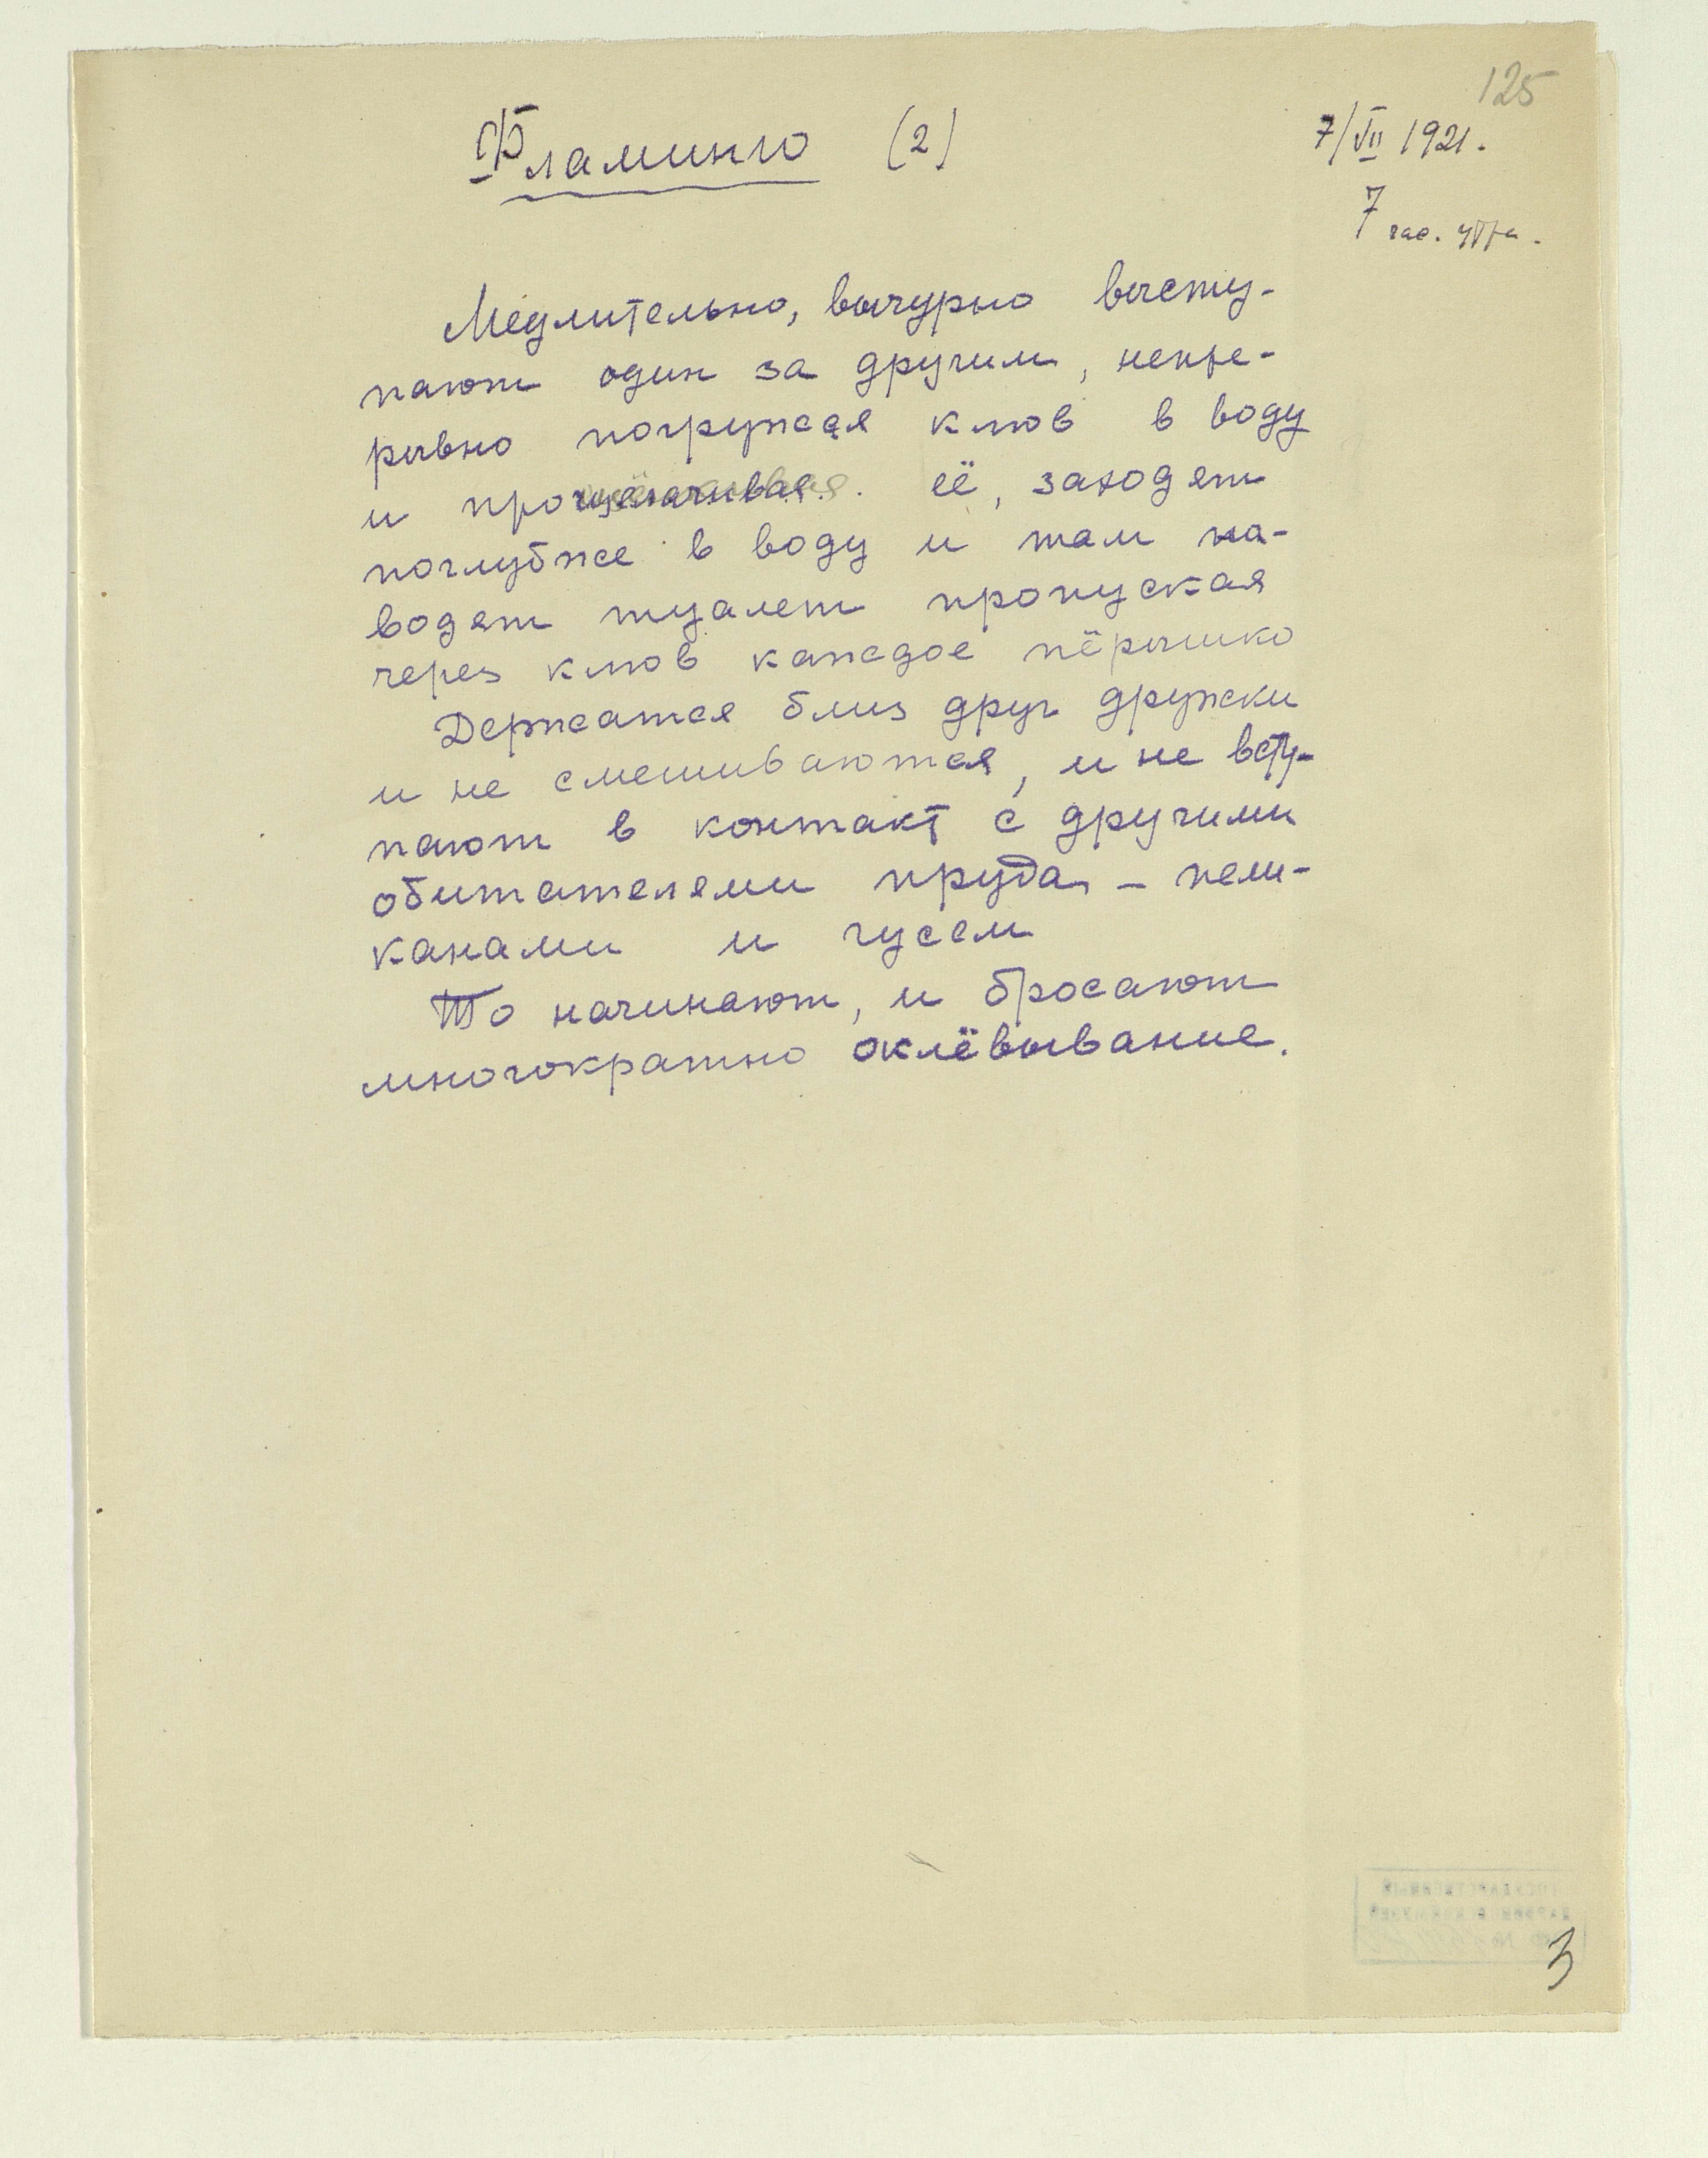 125
Фламинго (2)
7/VII 1921.
7 час. утра.
Медлительно, вычурно высту-
пают один за другим, непре-
рывно погружая клюв в воду
и прощёлачивая. её, заходят
поглубже в воду и там на-
водят туалет пропуская
через клюв каждое пёрышко
Держатся близ друг дружки
и не смешиваются, и не всту-
пают в контакт с другими
обитателями пруда, – пели-
канами и гусем
То начинают, и бросают
многократно оклёвывание.
3